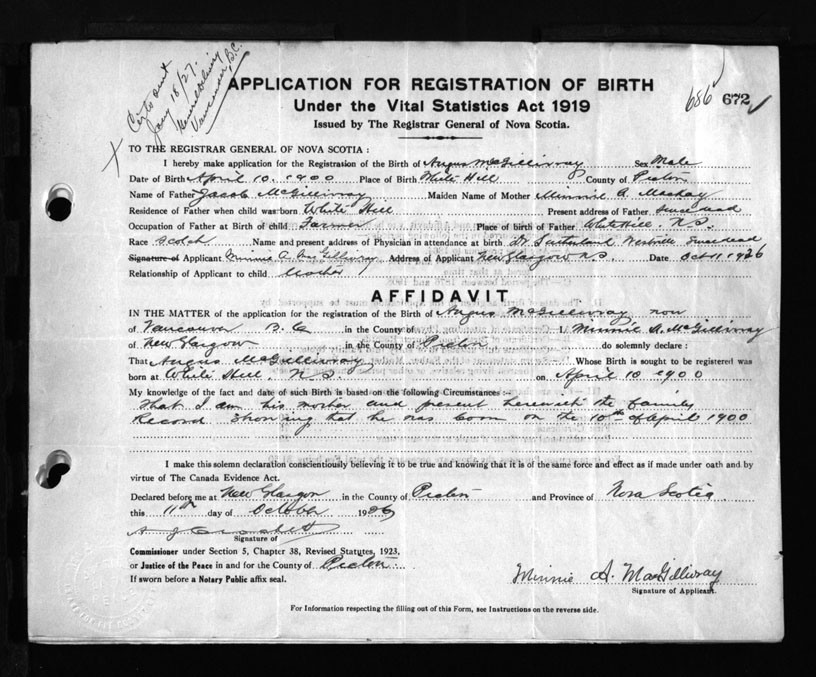 Jany 18/27.
Vancouver, B.C.
APPLICATION FOR REGISTRATION OF BIRTH
686 672
Under the Vital Statistics Act 1919
Issued by The Registrar General of Nova Scotia.
TO THE REGISTRAR GENERAL OF NOVA SCOTIA :
I hereby make application for the Registration of the Birth of Angus McGillivray Sex Male
Date of Birth April 10. 1900 Place of Birth White Hill County of Pictou
Name of Father Jacob McGillivray Maiden Name of Mother Minnie A. Mackay
Residence of Father when child was born White Hill Present address of Father since dead
Occupation of Father at Birth of child Farmer Place of birth of Father White Hill. N.S.
Race Scotch Name and present address of Physician in attendance at birth Dr Sutherland Westville Since dead
Signature of Applicant Minnie A McGillivray Address of Applicant New Glasgow N.S. Date Oct 11 1926
Relationship of Applicant to child Mother
AFFIDAVIT
IN THE MATTER of the application for the registration of the Birth of Angus McGillivray now
of Vancouver B.C. in the County of I, Minnie A. McGillivray
of New Glasgow in the County of Pictou do solemnly declare :
That Angus McGillivray Whose Birth is sought to be registered was
born at White Hill. N.S. on April 10 1900
My knowledge of the fact and date of such Birth is based on the following Circumstances :-
That I am his mother and present herewith the family
Record showing that he was born on the 10th of April 1900
I make this solemn declaration conscientiously believing it to be true and knowing that it is of the same force and effect as if made under oath and by
virtue of The Canada Evidence Act.
Declared before me at New Glasgow in the County of Pictou and Province of Nova Scotia
this 11th day of October 1926
Signature of
Commissioner under Section 5, Chapter 38, Revised Statutes, 1923,
or Justice of the Peace in and for the County of Pictou
If sworn before a Notary Public affix seal.
Minnie A. MacGillivray
Signature of Applicant.
For Information respecting the filling out of this Form, see Instructions on the reverse side.